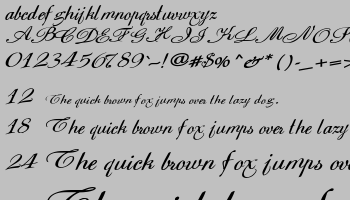 abcdefghijklmnopqrstuvwxyz
ABCDEFGHIJKLMNOP
0123456789·–!@#$%^&*()-_+=>
12 The quick brown fox jumps over the lazy dog.
18 The quick brown fox jumps over the lazy
24 The quick brown fox jumps ov